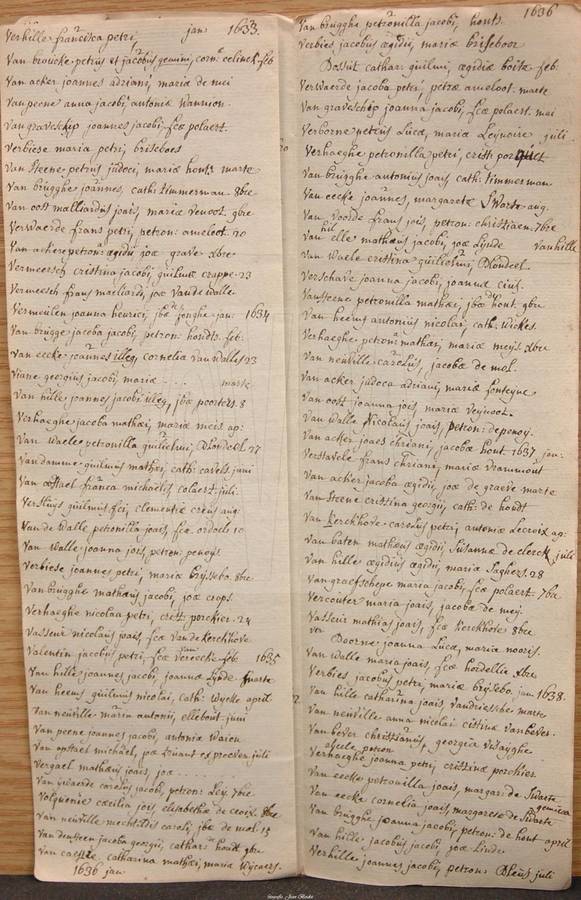 Verhille francisca petri, jan: 1633.
Van broucke petrus et jacobus gemini, corn: celinck. feb
Van acker joannes adriani, maria de mei
Van peene anna jacobi, antoniæ Wannion.
Van graveschip joannes jacobi, fcæ polaert.
Verbiese maria petri, briseboes
Van Steene petrus judoci, mariæ hont. marte
Van brugghe joannes, cath: timmerman. 8bre
Van oost malliardus joais, mariæ 9bre
Verwaerde frans petri, petron: ameloot. 20
Van ackere petron: ægidii, joæ grave xbre.
Vermeersch cristina jacobi, guilmæ crappe. 23
Vermeesch frans maeliardi, joæ Vande walle
Vermeulen joanna henrici, jbæ jonghe jan: 1634
Van brugge jacoba jacobi, petron: hondts. feb:
Van eecke joannes illeg, cornelia van walles 23
Viane georgius jacobi, mariæ . . . . marte
Van hille joannes jacobi illeg, jbæ poorters. 8
Verhaeghe jacoba mathæi, mariæ meis ap:
Van Waele petronilla guilielmi, Blondeel. 27
Van damme guilmus mathæi, cath: carels juni
Van ostael franca michaëlis, colaert. juli.
Versluys guilmus fci, clementiæ creus aug:
Van de Walle petronilla joais, fcæ ordoels 10
Van Walle joanna jois, petron: penoys
Verbiese joannes petri, mariæ briesebo. 8bre
Van brugghe mathæus jacobi, joæ craps.
Verhaeghe nicolaa petri, crist: porchier. 24
Vasseur nicolaus joais, fcæ Van de kerchhove
Valentin jacobus petri, fcæ Vereecke. feb. 1635
Van hille joannes jacobi, joannæ Lynde. marte
Van heems guilmus nicolai, cath: Wycke april
Van neuville maren antonii, ellebout. juni
Van peene joannes jacobi, antoniæ Warion
Van ostael michael, joæ juli
Vergael mathæus joais, joæ . . . . .
Van Waerde carolus jacobi, petron: Ley. 7bre
cæcilia jois, elisabethæ de croix. 8bre
Van neuville mechtildis caroli, jbæ de mol. 13
Van den steen jacoba georgii, cathar: hondt 9bre
Van caestre, catharina mathæi, maria Wycaers.
1636 jan

1636
Van brugghe petronilla jacobi, honts.
Verbies jacobus ægidii, mariæ briseboor
Dassuit cathar: guilmi, ægidiæ boita feb.
Verwaerde jacoba petri, petræ ameloot. marte
Van graveschip joanna jacobi, fcæ polaert. mai
Verborne petrus Lucæ, mariæ Leynoire juli.
Verhaeghe petronilla petri, crist:
Van brugghe antonius joais cath: timmerman
Van eecke joannes, margaretæ Swarte. aug.
Van Voorde frans jois, petron: christiaen. 7bre
Van hille mathæus jacobi, joæ Lynde Van hille
Van Waele cristina guilielmi, Blondeel.
Verschave joanna jacobi, joannæ
Van steene petronilla mathæi, jbæ d'hont. 9bre
Van heems antonius nicolai, cath: Wickes.
Verhaeghe petron: mathæi, mariæ meys. xbre
Van neuville carolus, jacobæ de mol.
Van acker judoca adriani, mariæ fonteyne
Van oost joanna jois mariæ
Van Walle Nicolaus joais, petron: depenoy.
Van acker joaes chriani, jacobæ hont. 1637 jan:
Verstavele frans chriani, mariæ
Van acker jacoba ægidii, joæ de graeve marte
Van Steene cristina georgii, cath: de hondt
Van Kerckhove carolus petri, antoniæ Lecroix ap:
Van baten mathæus ægidii, Susannæ de clerck juli
Van hille ægidius ægidii, mariæ Saghers. 28
Van graefschepe maria jacobi, fcæ polaert. 7bre
Vercouter maria joais, jacobæ de mey.
Vasseur mathias joais, fcæ Kerckhove 8bre
Van Doorne joanna Lucæ, mariæ nooris.
Van Walle maria joais, fcæ hordellie xbre
Verbies jacobus petri, mariæ briesebo. jan: 1638.
Van hille catharina joais, Vandriessche marte
Van neuville anna nicolai cistinæ vanbever.
Van bever christianus, georgia
Verhaeghe joanna petri, cristinæ porchier.
Van eecke petronilla joais, margar: de Swarte
Van eecke cornelia joais, margaretæ de Swarte gemina
Van brugghe joanna jacobi, petron: de hont april
Van hille jacobus jacobi, joæ Linde
Verhille joannes jacobi, petron: Bleus juli